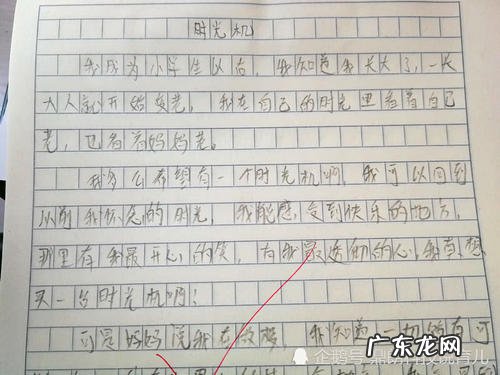 时光机
我成为小学生以后，我知道我长大了，一长
大人就开始变老。我在自己的时光里看着自己
老，也看着妈妈老。
我多么希望有一个时光机啊，我可以回到
以前我怀念的时光，我能感受到快乐的地方，
那里有我最开心的笑，有我最透彻的心，我真想
买一台时光机啊！
可是妈妈说我在做梦，我知道一切皆有可
企鹅号
广东龙网